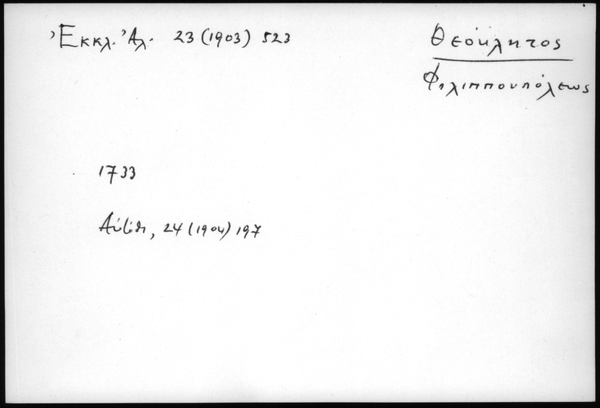 Ἐκκλ. Ἀλ. 23 (1903) 523
Θεόκλητος
Φιλιππουπόλεως
1733
Αὐτόθι, 24 (1904) 197